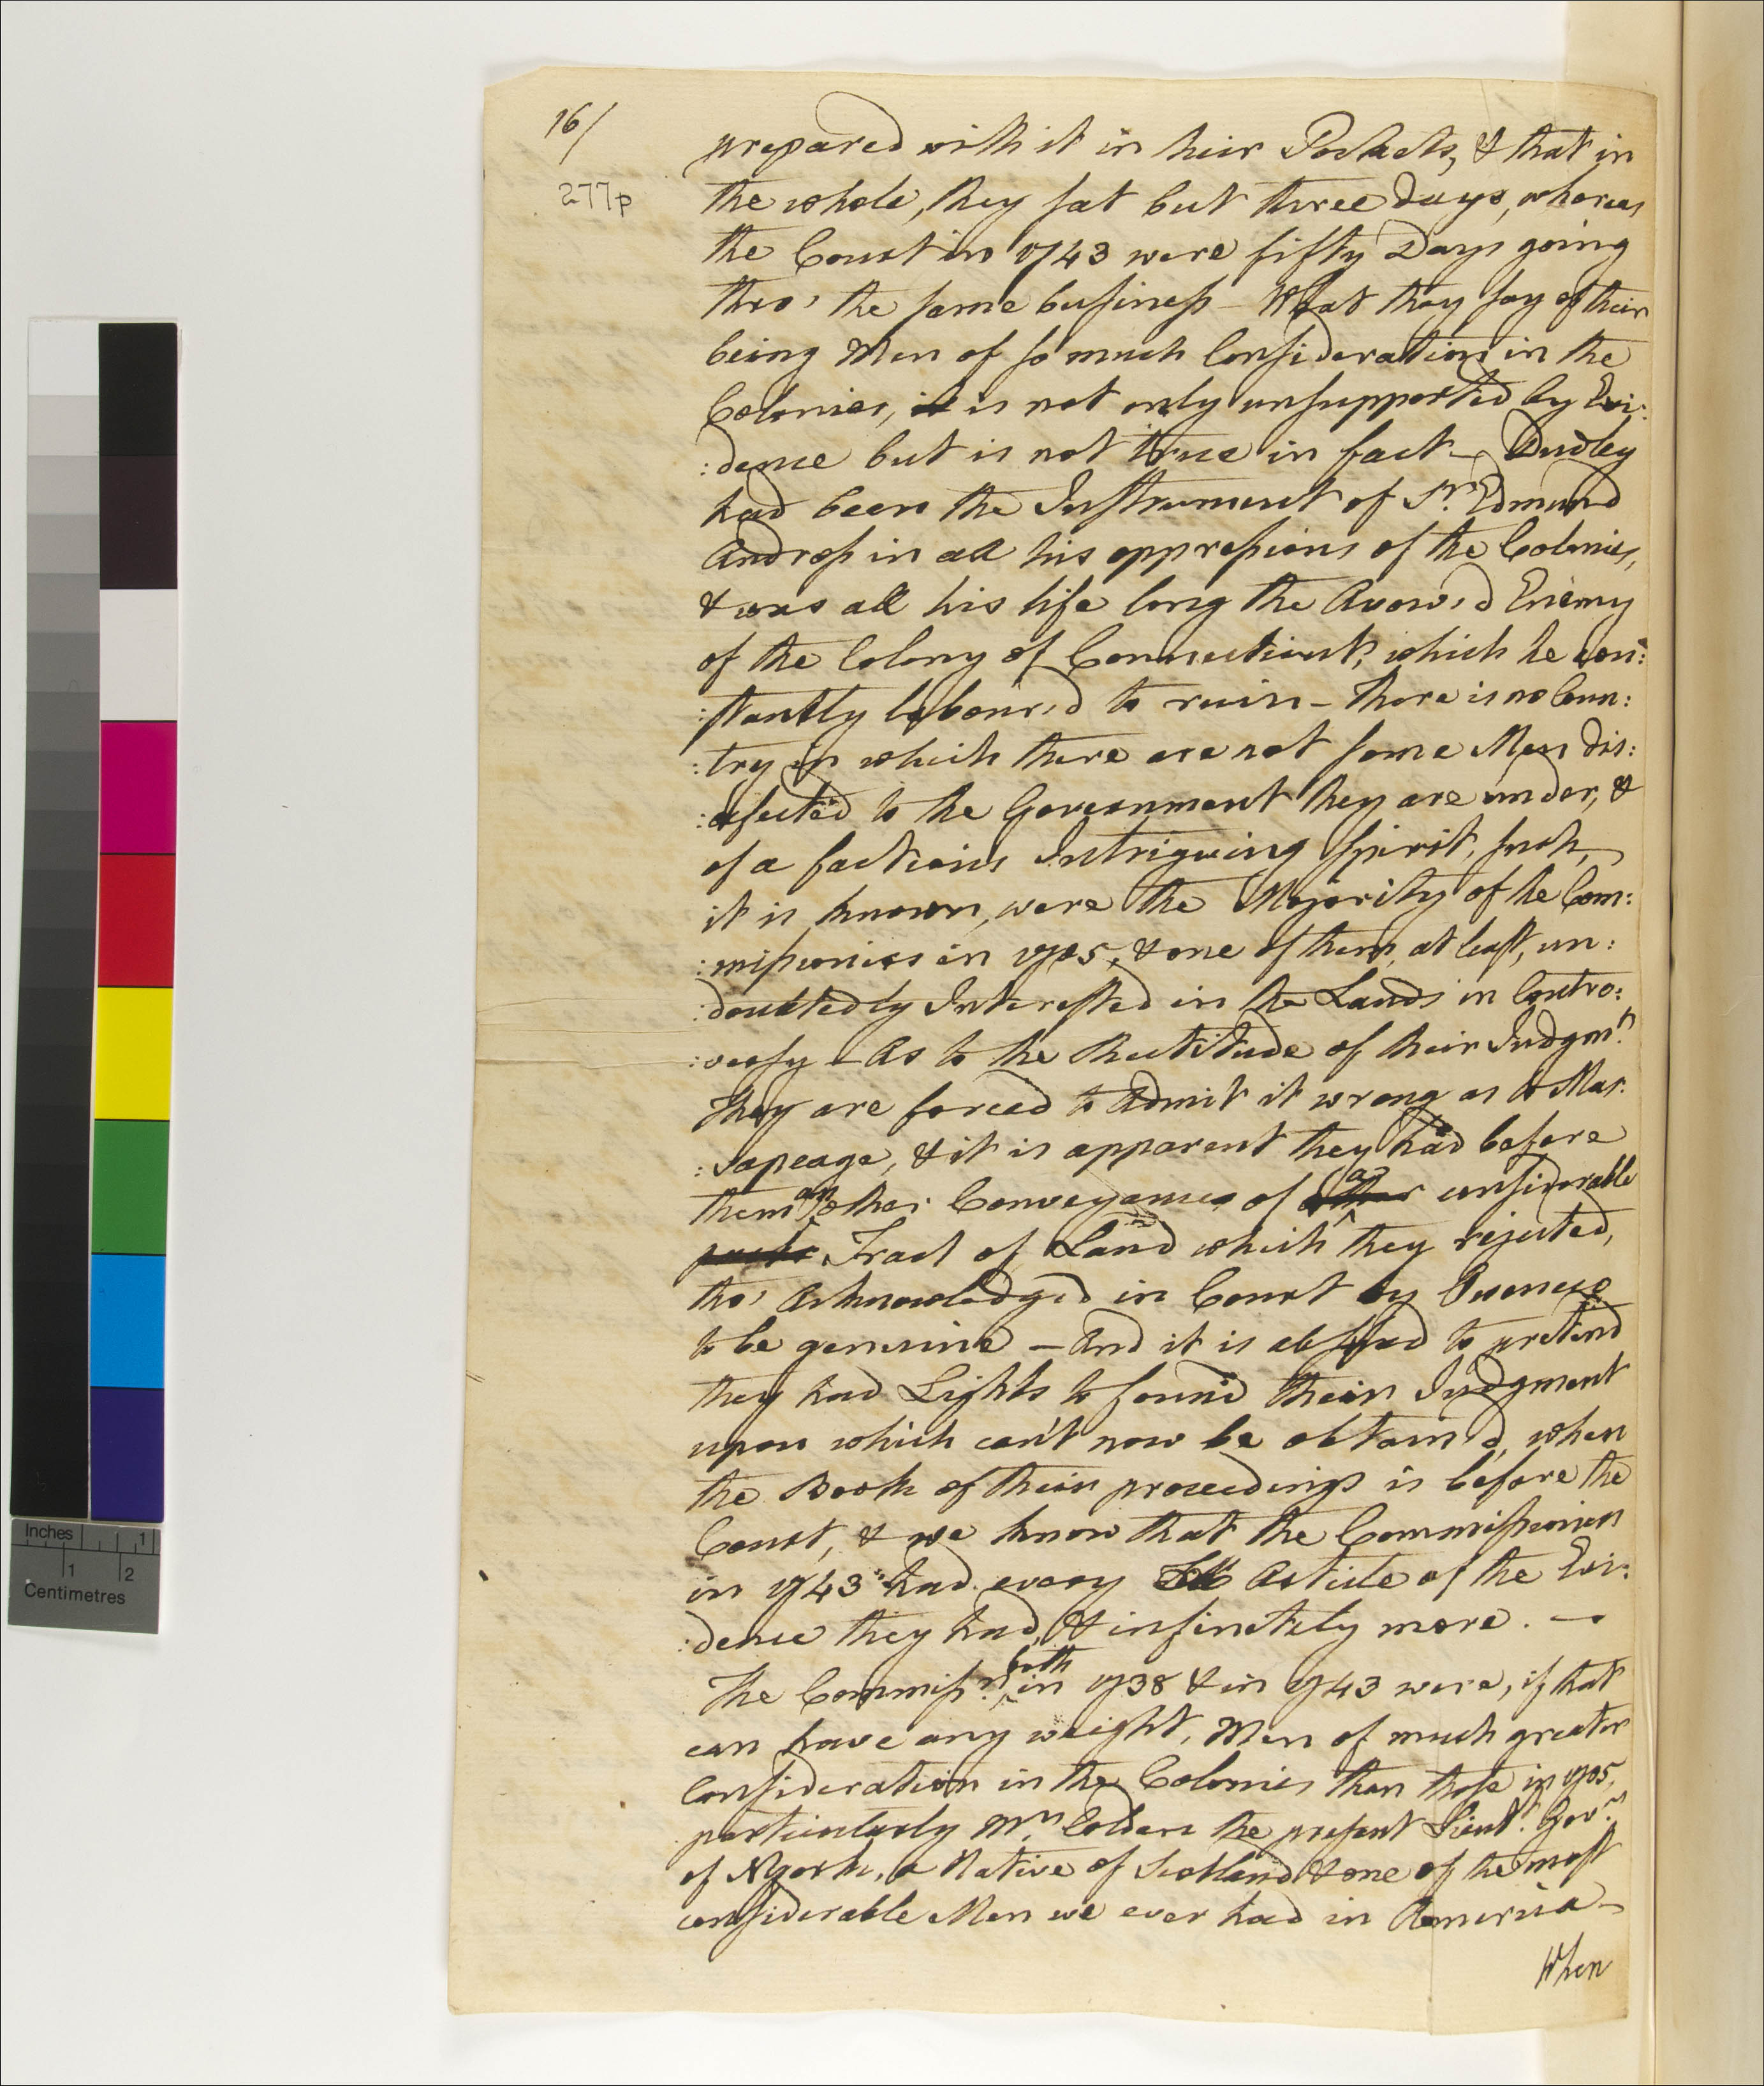 16/
277p
prepared with it in their Pockets, & that in
the whole, they sat but three Days, whereas
the Court in 1743 were fifty Days going
thro' the same business - What they say of their
being Men of so much Consideration in the
Colonies, it is not only unsupported by Evi:
:dence but is not true in fact - Dudley
had been the Instrument of Sr. Edmund
Andross in all his oppressions of the Colonies,
& was all his life long the Avow'd Enemy
of the Colony of Connecticut, which he con:
:stantly labour'd to ruin - there is no Coun:
:try in which there are not some Men dis:
:afected to the Government they are under, &
of a factious Intriguing Spirit, such,
it is known, were the Majority of the Com:
:missioners in 1705, & one of them, at least, un:
:doubtedly Interested in the Lands in Contro:
:versy - As to the Rectitude of their Judgmt.
they are forced to Admit it wrong as to Mas:
:sapeage, & it is apparent they had before
them an other Conveyance of other a considerable
parts Tract of Land which they rejected,
tho' Acknowledged in Court by Oweneco
to be genuine - And it is absurd to pretend
they had Lights to found their Judgment
upon which can't now be obtain'd, when
the Book of their proceedings is before the
Court, & we know that the Commissioners
in 1743 had every Article of the Evi:
:dence they had, & infinitely more. -
The Commissrs. both in 1738 & in 1743 were, if that
can have any weight, Men of much greater
Consideration in the Colonies than those in 1705,
particularly Mr. Colden the present Lieut. Govr.
of NYork, a Native of Scotland & one of the most
considerable Men we ever had in America -
When